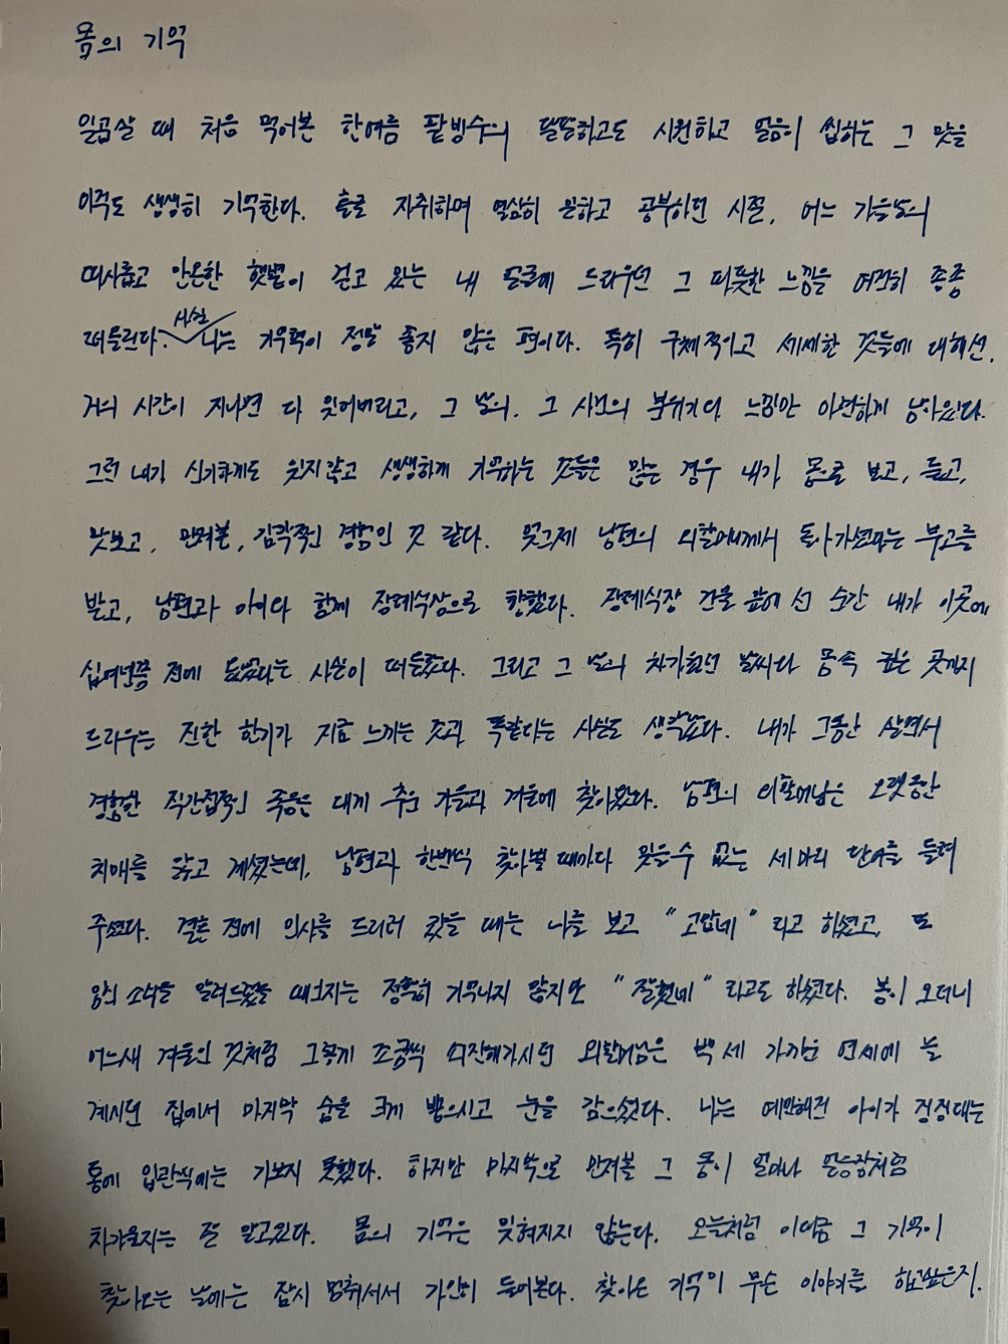 몸의 기억
일곱살 때 처음 먹어본 한여름 팥빙수의 달달하고도 시원하고 얼음이 씹히는 그 맛을
아직도 생생히 기억한다. 홀로 자취하며 열심히 일하고 공부하던 시절, 어느 가을날의
따사롭고 안온한 햇볕이 걷고 있는 내 얼굴에 드리우던 그 따뜻한 느낌을 여전히 종종
떠올린다. 사실 나는 기억력이 정말 좋지 않은 편이다. 특히 구체적이고 세세한 것들에 대해선,
거의 시간이 지나면 다 잊어버리고, 그 날의, 그 시간의 분위기와 느낌만 아련하게 남아있다.
그런 내가 신기하게도 잊지않고 생생하게 기억하는 것들은 많은 경우 내가 몸으로 보고, 듣고,
맛보고, 만져본, 감각적인 경험인 것 같다. 엊그제 남편의 외할머니께서 돌아가셨다는 부고를
받고, 남편과 아이와 함께 장례식장으로 향했다. 장례식장 건물 앞에 선 순간 내가 이곳에
십여년쯤 전에 왔었다는 사실이 떠올랐다. 그리고 그 날의 차가웠던 날씨와 몸속 깊은 곳까지
드리우는 진한 한기가 지금 느끼는 것과 똑같다는 사실도 생각났다. 내가 그동안 살면서
경험한 직간접적인 죽음은 대개 추운 가을과 겨울에 찾아왔다. 남편의 외할머님은 오랫동안
치매를 앓고 계셨는데, 남편과 한번씩 찾아뵐 때마다 잊을 수 없는 세 마리 단어를 들려
주셨다. 결혼 전에 인사를 드리러 갔을 때는 나를 보고 "고맙네" 라고 하셨고, 또
임신 소식을 알려드렸을 때인지는 정확히 기억나지 않지만 "잘했네" 라고도 하셨다. 봄이 오더니
어느새 겨울인 것처럼 그렇게 조금씩 쇠잔해가시던 외할머님은 백 세 가까운 연세에 늘
계시던 집에서 마지막 숨을 크게 뱉으시고 눈을 감으셨다. 나는 예민해진 아이가 징징대는
통에 입관식에는 가보지 못했다. 하지만 마지막으로 만져볼 그 몸이 얼마나 얼음장처럼
차가울지는 잘 알고있다. 몸의 기억은 잊혀지지 않는다. 오늘처럼 이따금 그 기억이
찾아오는 날에는 잠시 멈춰서서 가만히 들어본다. 찾아온 기억이 무슨 이야기를 하고싶은지.